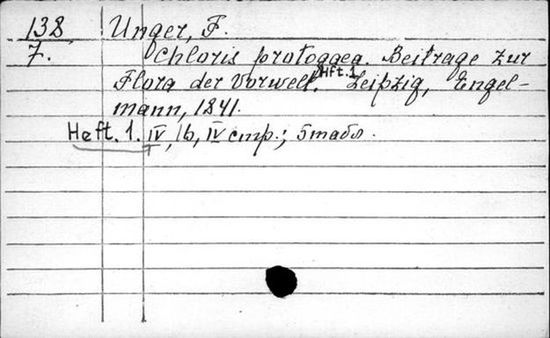 138 Unger, F.
7. Chloris protogaea. Beitrage zur
Flora der Vorwelt. Hft. 1. Leipzig, Engel-
mann, 1841.
Heft. 1. IV, 16, IV стр.;